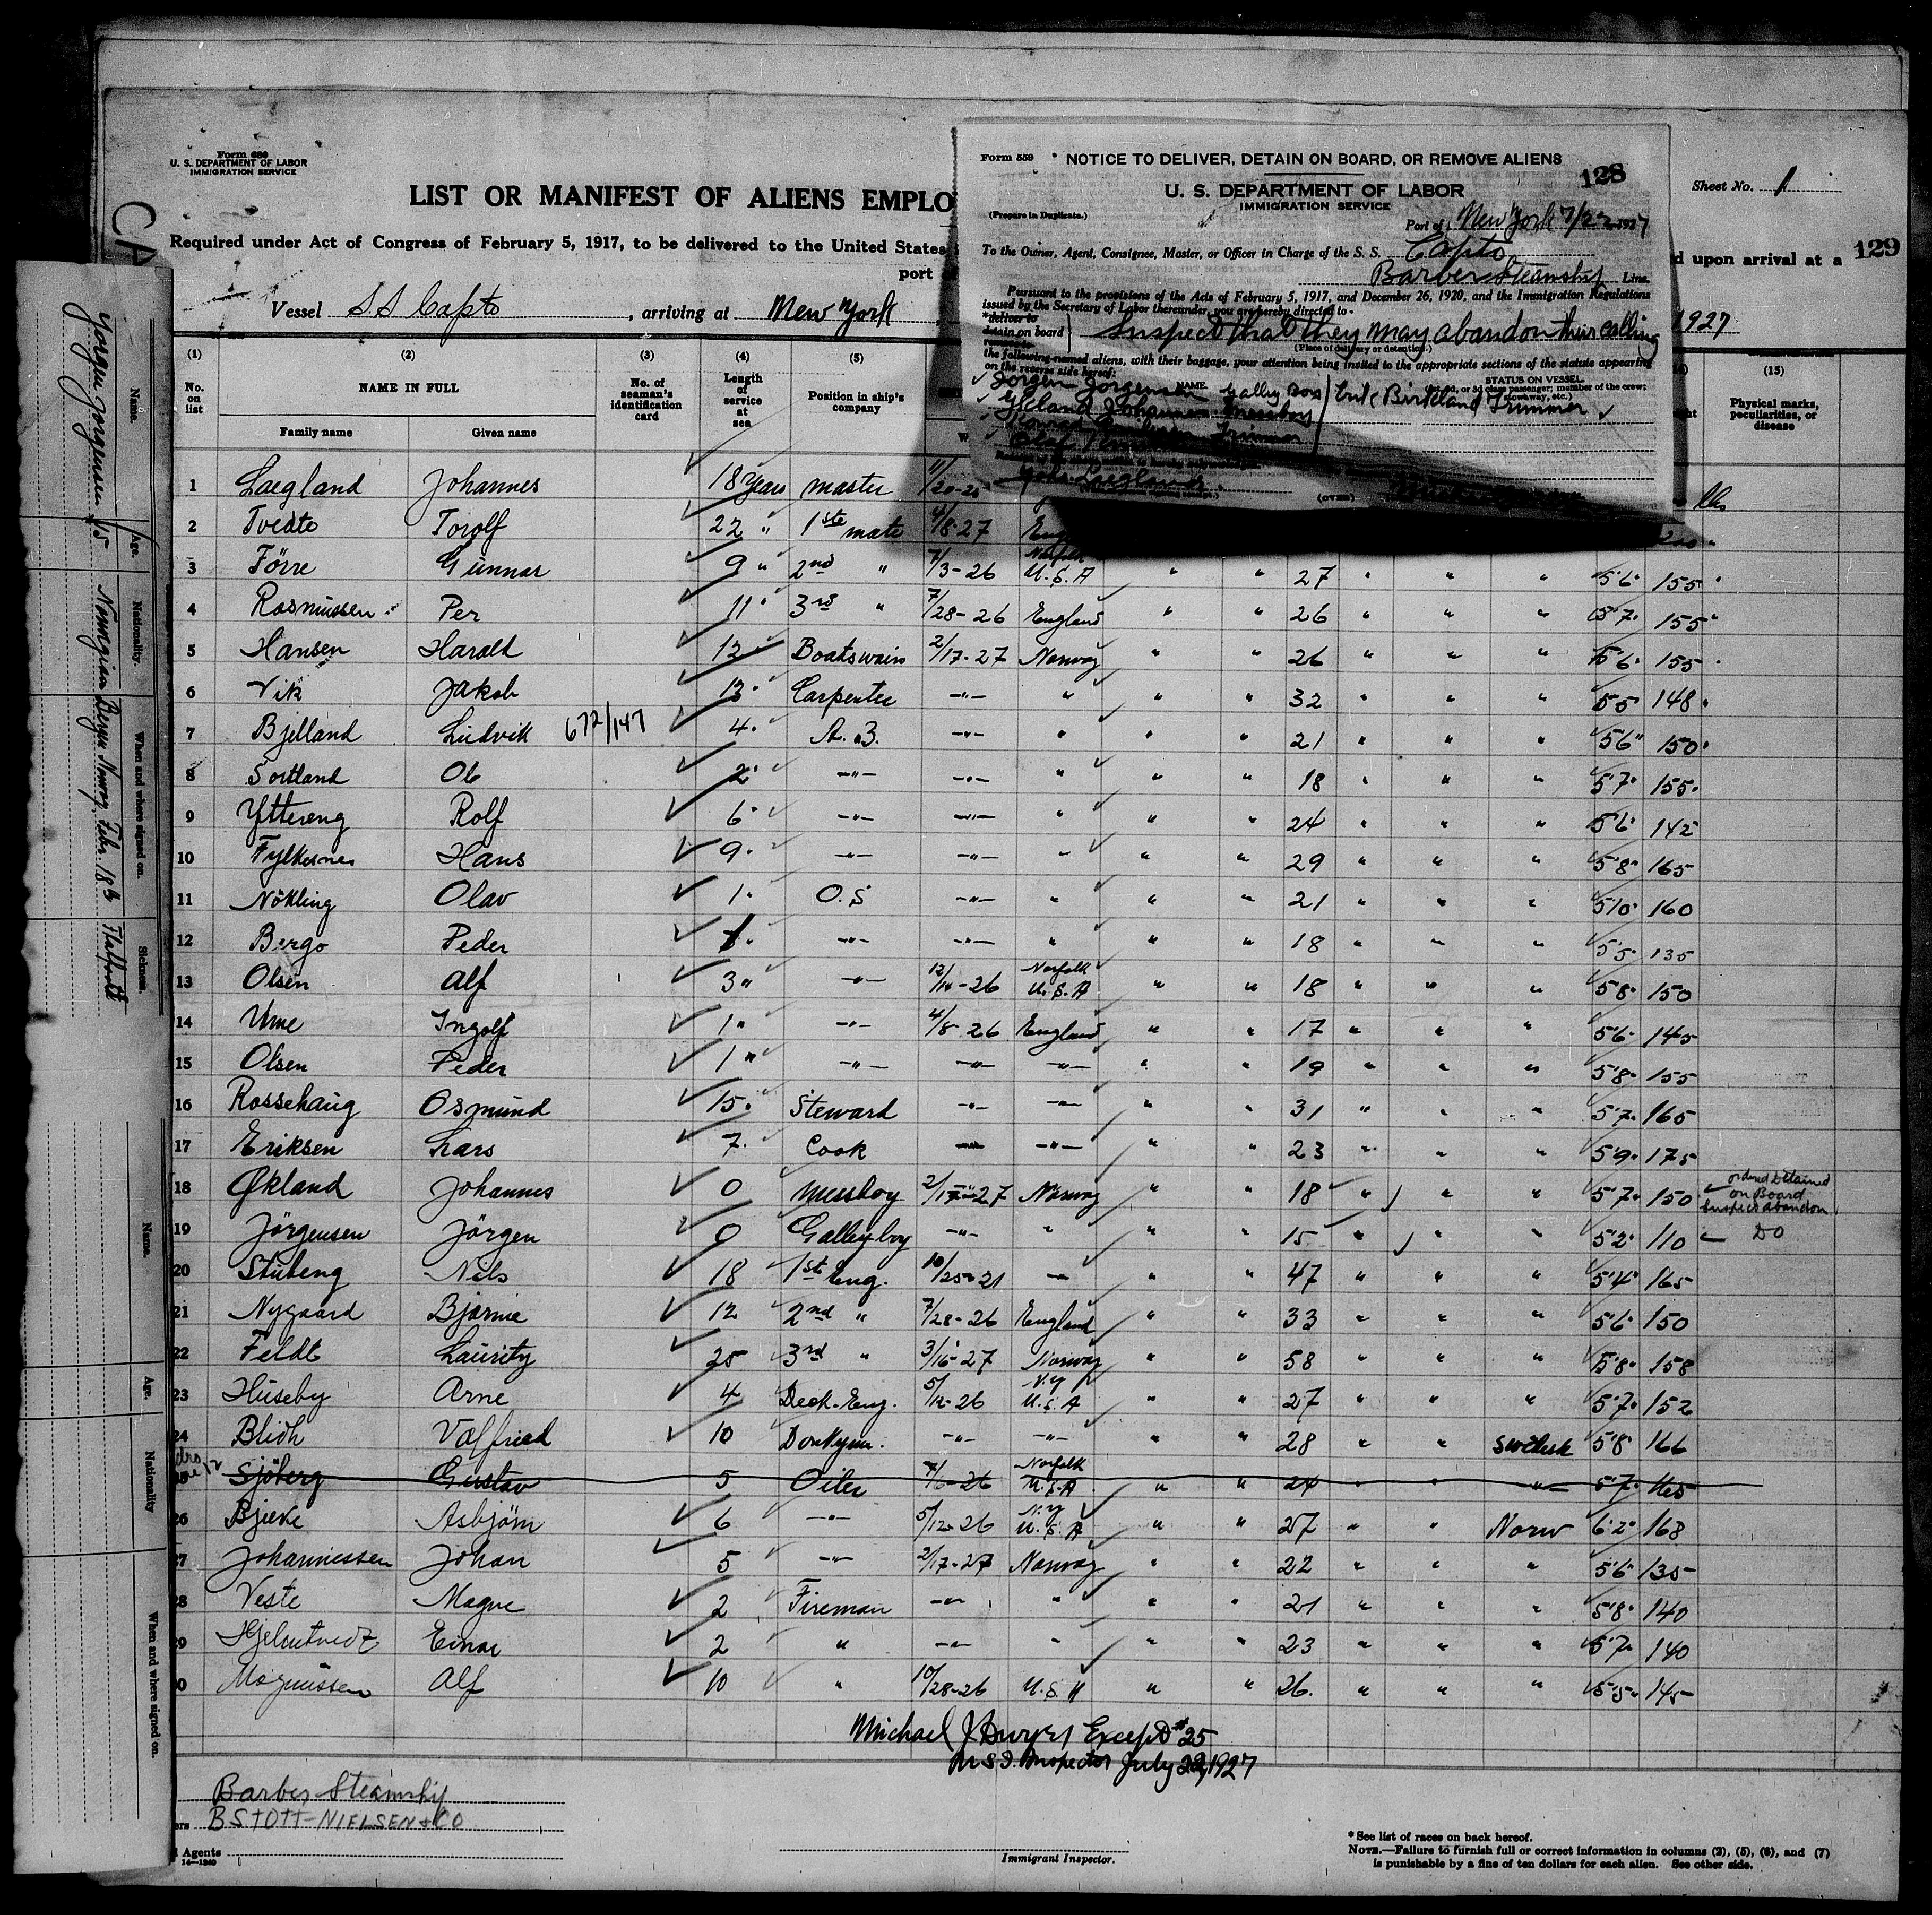 Form 680
U. S. DEPARTMENT OF LABOR
IMMIGRATION SERVICE
LIST OR MANIFEST OF ALIENS EMPLO
Sheet No. 1
129
Required under Act of Congress of February 5, 1917, to be delivered to the United States
d upon arrival at a
port
Vessel S.S Capto, arriving at New York
1927
Form 559
NOTICE TO DELIVER, DETAIN ON BOARD, OR REMOVE ALIENS
128
U. S. DEPARTMENT OF LABOR
IMMIGRATION SERVICE
(Prepare in Duplicate.)
Port of New York 7/22 1927
To the Owner, Agent, Consignee, Master, or Officer in Charge of the S. S. Capto
Barber Steamship Line.
Pursuant to the provisions of the Acts of February 5, 1917, and December 26, 1920, and the Immigration Regulations
issued by the Secretary of Labor thereunder, you are hereby directed to-
*deliver to
detain on board
remove to
Suspect that they may abandon their calling
(Place of delivery or detention.)
the following-named aliens, with their baggage, your attention being invited to the appropriate sections of the statute appearing
on the reverse side hereof:
NAME.
STATUS ON VESSEL.
Jorgen Jorgensen Galley Boy
Erik Birkeland Trimmer
Johannes Messboy
Trimmer
Olaf
Johs. Laegland
(OVER)
(1) (2) (3) (4) (5) (15)
No. on list
NAME IN FULL
Family name Given name
No. of seaman's identification card
Length of service at sea
Position in ship's company
Physical marks, peculiarities, or disease
1 Laegland Johannes 18 Years master
2 Tvedto Torolf 22 " 1ste mate 4/8-27
3 Förre Gunnar 9 " 2nd " 7/3-26 Norfolk U.S.A " " 27 " " " 5'6" 155
4 Rasmussen Per 11 " 3rd " 7/28-26 England " " 26 " " " 5'7" 155
5 Hansen Harald 12 " Boatswain 2/17-27 Norway " " 26 " " " 5'6" 155
6 Vik Jakob 13 " Carpenter -"- " " " 32 " " " 5'5" 148
7 Bjelland Ludvik 672/147 4 " A.B. -"- " " " 21 " " " 5'6" 150
8 Sortland Ole 2 " -"- -"- " " " 18 " " " 5'7" 155
9 Yttereng Rolf 6 " -"- -"- " " " 24 " " " 5'6" 142
10 Fylkesnes Hans 9 " -"- -"- " " " 29 " " " 5'8" 165
11 Nökling Olav 1 " O.S -"- " " " 21 " " " 5'10" 160
12 Bergo Peder 1 " -"- -"- " " " 18 " " " 5'5" 135
13 Olsen Alf 3 " -"- 12/14-26 Norfolk U.S.A " " 18 " " " 5'8" 150
14 Ume Ingolf 1 " -"- 4/8-26 England " " 17 " " " 5'6" 145
15 Olsen Peder 1 " -"- -"- -"- " " 19 " " " 5'8" 155
16 Rossehaug Osmund 15 " Steward -"- -"- " " 31 " " " 5'7" 165
17 Eriksen Lars 7 " Cook -"- -"- " " 23 " " " 5'9" 175
18 Økland Johannes 0 Messboy 2/17-27 Norway " " 18 " " " 5'7" 150 ordered Detained on Board Suspect abandon
19 Jörgensen Jörgen 0 Galley boy -"- " " " 15 " " " 5'2" 110 DO
20 Stubeng Nils 18 1st Eng. 10/25-21 -"- " " 47 " " " 5'4" 165
21 Nygaard Bjarne 12 2nd " 7/28-26 England " " 33 " " " 5'6" 150
22 Feldt Lauritz 25 3rd " 3/16-27 Norway " " 58 " " " 5'8" 158
23 Huseby Arne 4 Deck-Eng. 5/12-26 N.Y U.S.A " " 27 " " " 5'7" 152
24 Blidh Valfried 10 Donkeym. -"- -"- " " 28 " " Swedish 5'8" 166
25 Sjöberg Gustav 5 Oiler 7/ -26 Norfolk U.S.A " " 24 " " " 5'7" 165
26 Bjerke Asbjörn 6 -"- 5/12-26 N.Y U.S.A " " 27 " " Norw 6'2" 168
27 Johannessen Johan 5 -"- 2/17-27 Norway " " 22 " " " 5'6" 135
28 Veste Magne 2 Fireman -"- " " " 21 " " " 5'8" 140
29 Hjelmtvedt Einar 2 " -"- " " " 23 " " " 5'7" 140
30 Magnussen Alf 10 " 10/28-26 U.S.A " " 26 " " " 5'5" 145
Michael J Dwyer Except #25
U.S.I. Inspector July 22, 1927
Barber Steamship
B STOTT-NIELSEN & CO
Agents
14-1240
Immigrant Inspector.
*See list of races on back hereof.
NOTE.—Failure to furnish full or correct information in columns (2), (5), (6), and (7)
is punishable by a fine of ten dollars for each alien. See other side.
Name. Age. Nationality. When and where signed on. Sickness.
Jorgen Jorgensen 15 Norwegian Bergen Norway Febr. 18th Flatfoot
Name. Age. Nationality When and where signed on.